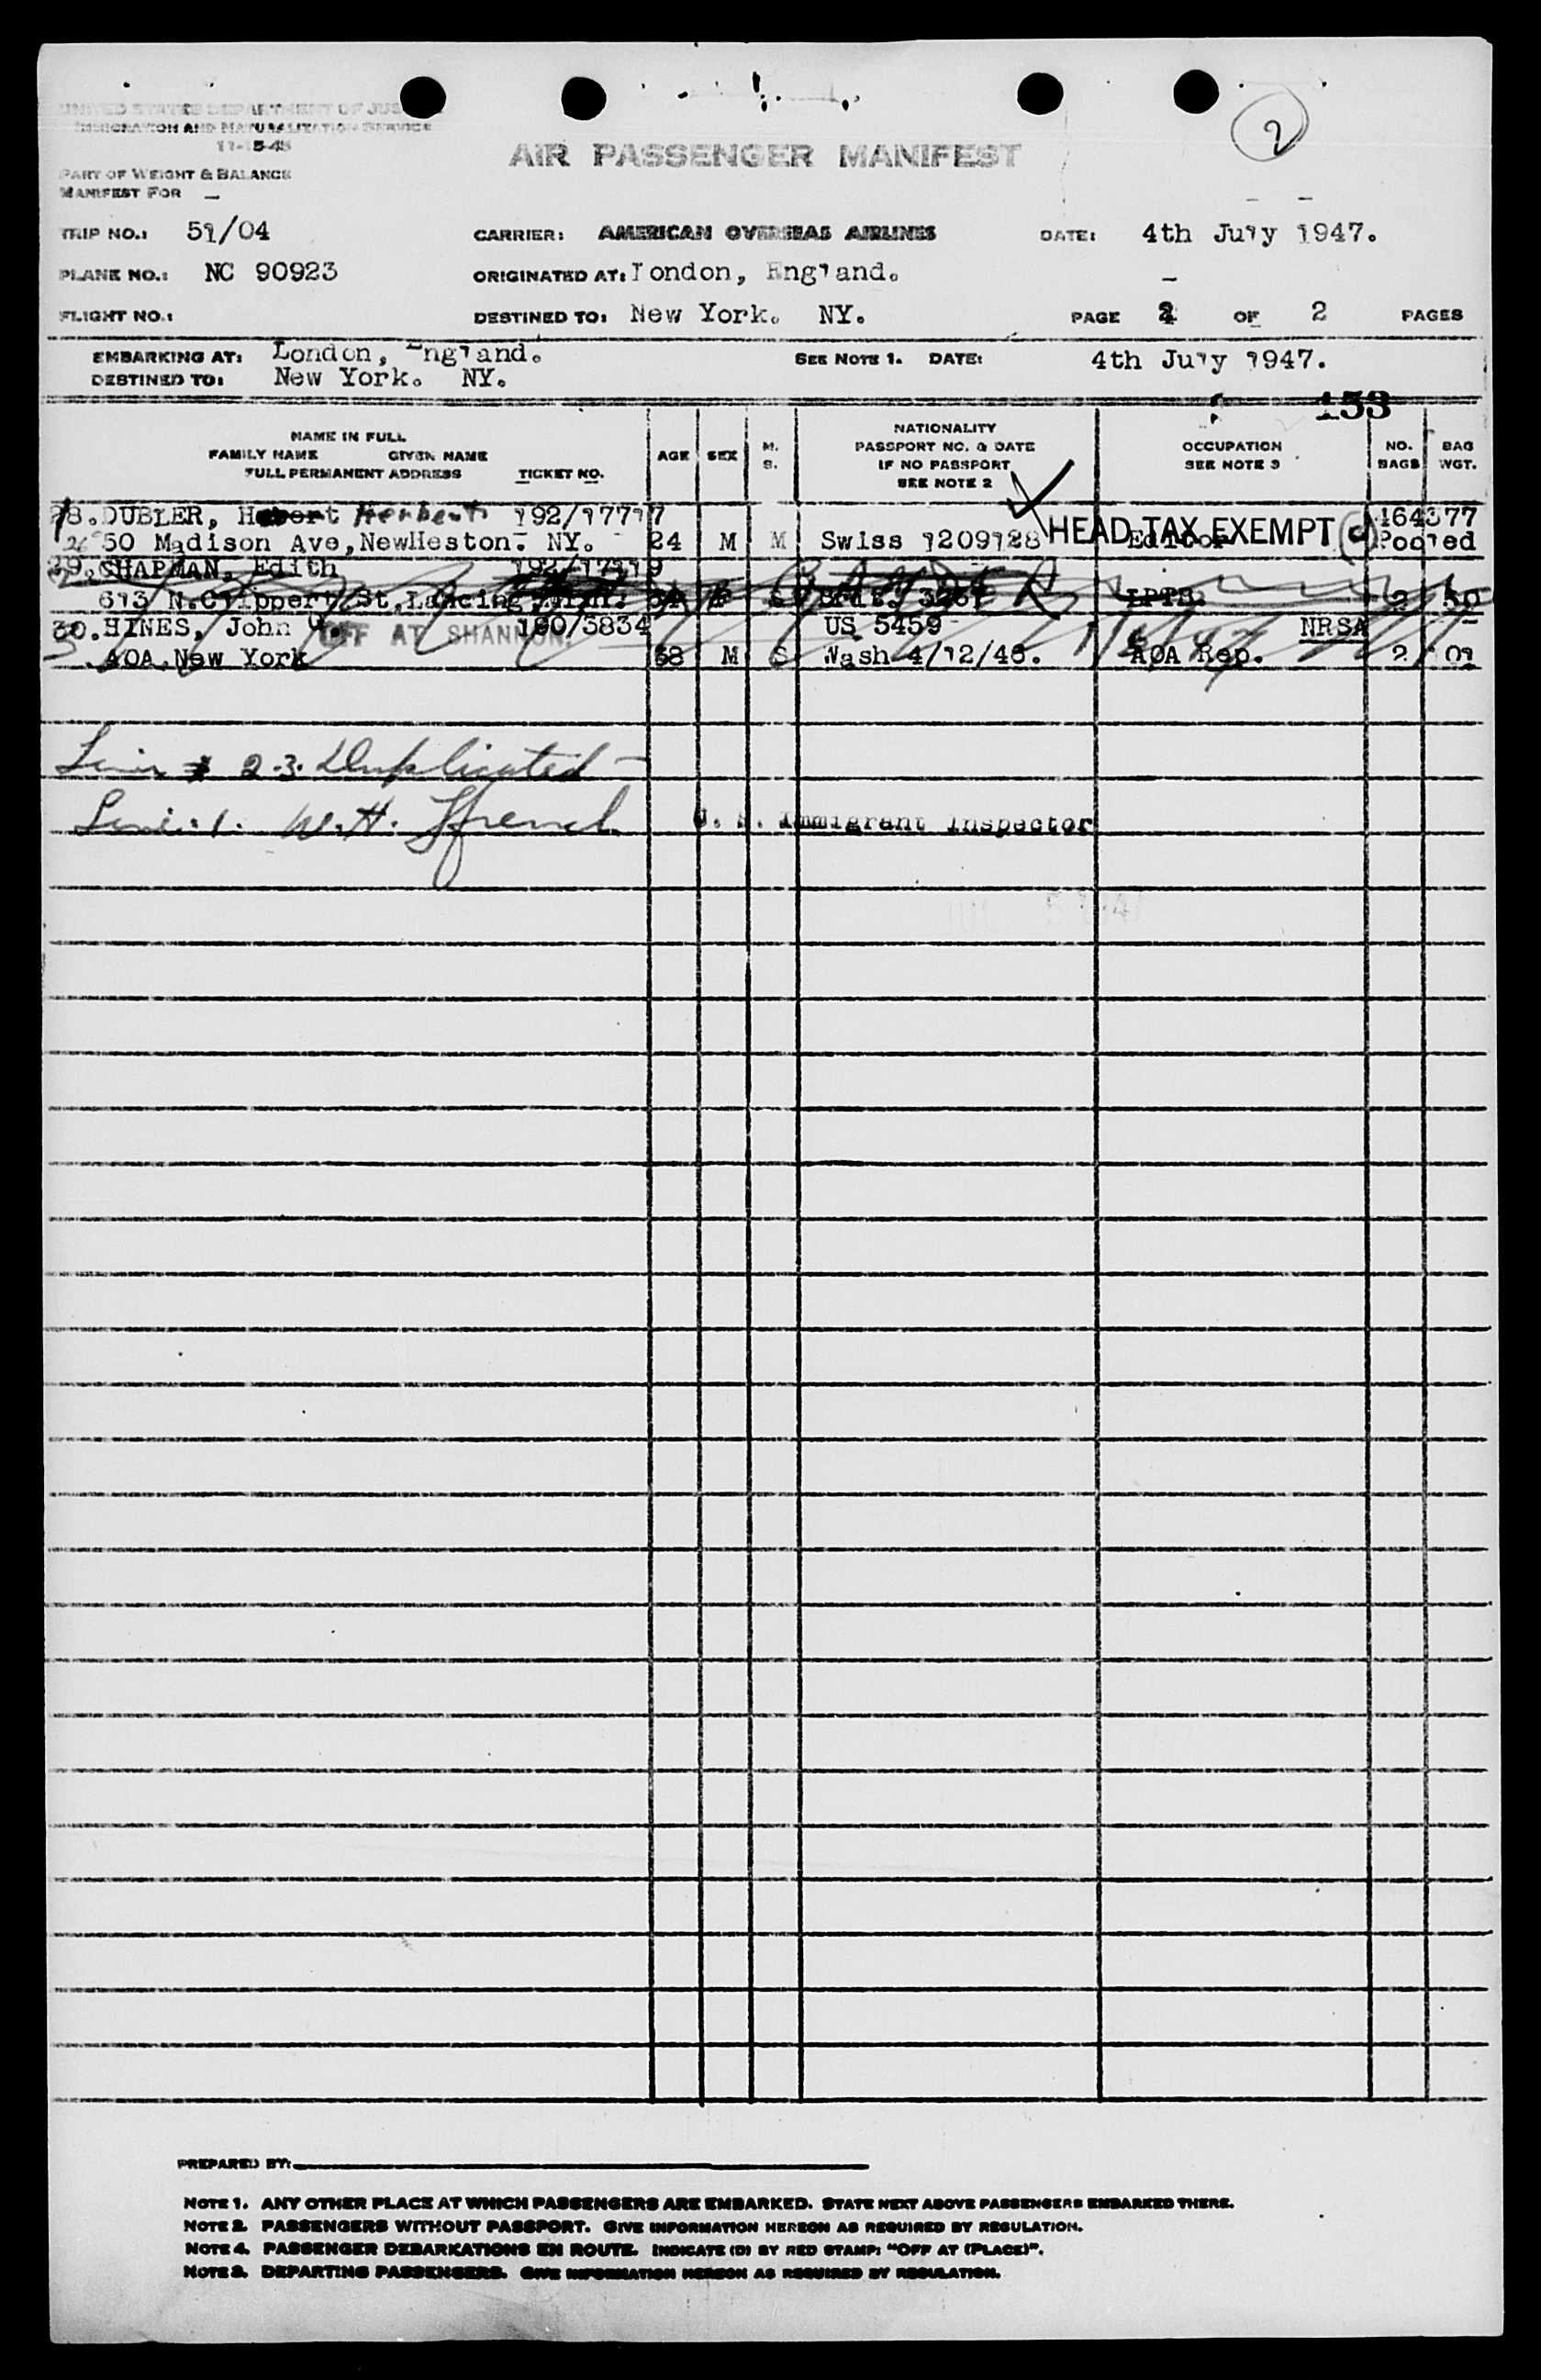 2
UNITED STATES DEPARTMENT OF JUS
IMMIGRATION AND NATURALIZATION SERVICE
11-15-45
AIR PASSENGER MANIFEST
PART OF WEIGHT & BALANCE
MANIFEST FOR -
TRIP NO.: 51/04 CARRIER: AMERICAN OVERSEAS AIRLINES DATE: 4th July 1947.
PLANE NO.: NC 90923 ORIGINATED AT: London, England.
FLIGHT NO.: DESTINED TO: New York. NY. PAGE 2 OF 2 PAGES
EMBARKING AT: London, England. SEE NOTE 1. DATE: 4th July 1947.
DESTINED TO: New York. NY.
153
NAME IN FULL
FAMILY NAME GIVEN NAME
FULL PERMANENT ADDRESS TICKET NO.
AGE SEX M. S.
NATIONALITY
PASSPORT NO. & DATE
IF NO PASSPORT
SEE NOTE 2
OCCUPATION
SEE NOTE 3
NO. BAGS
BAG WGT.
28. DUBLER, Herbert 192/17717 464377
50 Madison Ave, NewHeston. NY. 24 M M Swiss 1209128 HEAD TAX EXEMPT Editor Pooled
29. CHAPMAN, Edith 192/17719
613 N.Clippert St, Lancing 2 50
30. HINES, John 190/3834 US 5459 NRSA
OFF AT SHANNON.
AOA, New York 38 M S Wash 4/12/46. AOA Rep. 2 01
Line 2.3. Duplicated
Line. 1. W.H. Ffrench U. S. Immigrant Inspector
PREPARED BY:
NOTE 1. ANY OTHER PLACE AT WHICH PASSENGERS ARE EMBARKED. STATE NEXT ABOVE PASSENGERS EMBARKED THERE.
NOTE 2. PASSENGERS WITHOUT PASSPORT. GIVE INFORMATION HEREON AS REQUIRED BY REGULATION.
NOTE 4. PASSENGER DEBARKATIONS EN ROUTE. INDICATE (D) BY RED STAMP: "OFF AT (PLACE)".
NOTE 3. DEPARTING PASSENGERS. GIVE INFORMATION HEREON AS REQUIRED BY REGULATION.